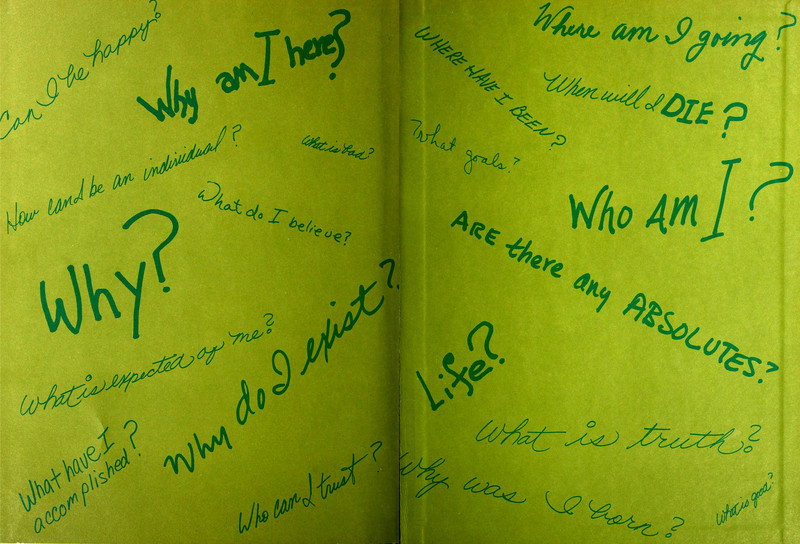 Can I be happy?
Why am I here?
How can I be an individual?
What is bad?
What do I believe?
Why?
What is expected of me?
Why do I exist?
What have I
accomplished?
Who can I trust?
Where am I going?
WHERE HAVE I BEEN?
When will I DIE?
What goals?
Who AM I?
ARE there any ABSOLUTES?
Life?
What is truth?
Why was I born?
What is good?